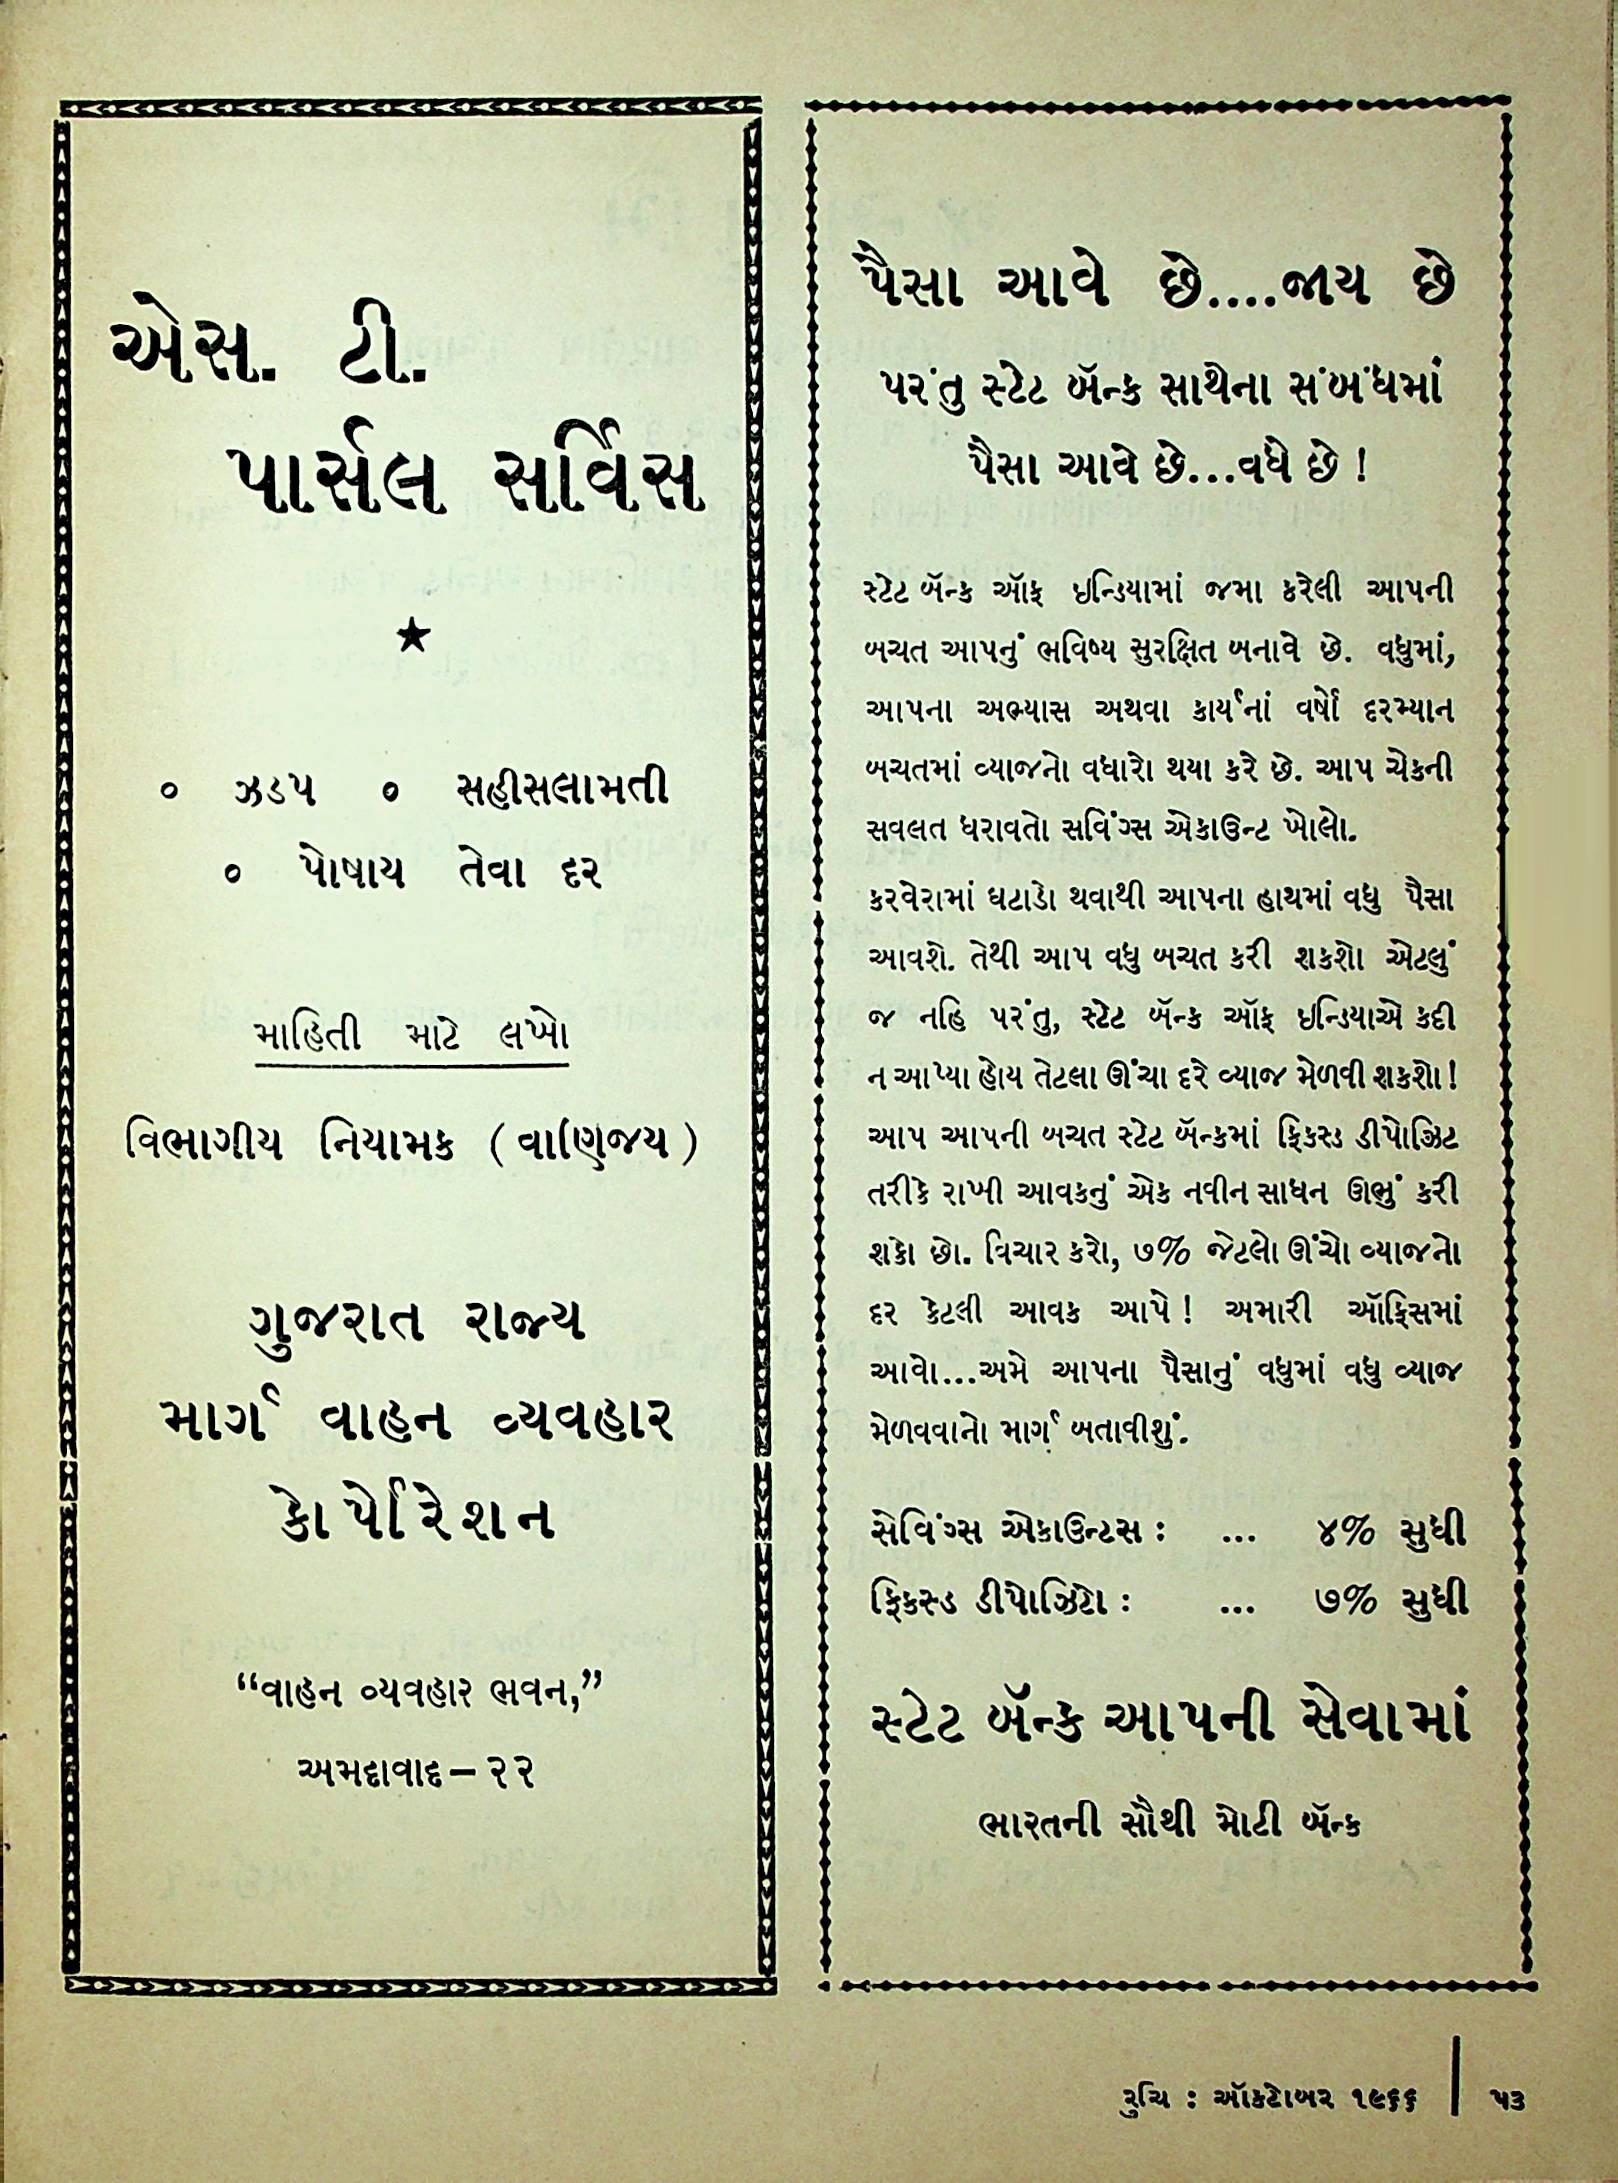 એસ. ટી.
પાર્સલ સર્વિસ
★
૦ ઝડપ ૦ સહીસલામતી
૦ પોષાય તેવા દર
માહિતી માટે લખો
વિભાગીય નિયામક (વાણિજય)
ગુજરાત રાજ્ય
માર્ગ વાહન વ્યવહાર
કોર્પોરેશન
“વાહન વ્યવહાર ભવન,”
અમદાવાદ – ૨૨
પૈસા આવે છે....જાય છે
પરંતુ સ્ટેટ બૅન્ક સાથેના સંબંધમાં
પૈસા આવે છે...વધે છે !
સ્ટેટ બૅન્ક ઑફ ઇન્ડિયામાં જમા કરેલી આપની
બચત આપનું ભવિષ્ય સુરક્ષિત બનાવે છે. વધુમાં,
આપના અભ્યાસ અથવા કાર્યનાં વર્ષો દરમ્યાન
બચતમાં વ્યાજનો વધારો થયા કરે છે. આપ ચેકની
સવલત ધરાવતો સવિંગ્સ એકાઉન્ટ ખોલો.
કરવેરામાં ઘટાડો થવાથી આપના હાથમાં વધુ પૈસા
આવશે. તેથી આપ વધુ બચત કરી શકશો એટલું
જ નહિ પરંતુ, સ્ટેટ બૅન્ક ઑફ ઇન્ડિયાએ કદી
ન આપ્યા હોય તેટલા ઊંચા દરે વ્યાજ મેળવી શકશો!
આપ આપની બચત સ્ટેટ બૅન્કમાં ફિકસ્ડ ડીપોઝિટ
તરીકે રાખી આવકનું એક નવીન સાધન ઊભું કરી
શકો છો. વિચાર કરો, ૭% જેટલો ઊંચો વ્યાજનો
દર કેટલી આવક આપે! અમારી ઑફિસમાં
આવો...અમે આપના પૈસાનું વધુમાં વધુ વ્યાજ
મેળવવાનો માર્ગ બતાવીશું.
સેવિંગ્સ એકાઉન્ટસ : ... ૪% સુધી
ફિકસ્ડ ડીપોઝિટો : ... ૭% સુધી
સ્ટેટ બૅન્ક આપની સેવામાં
ભારતની સૌથી મોટી બૅન્ક
રુચિ : ઑક્ટોબર ૧૯૬૬ | ૫૩